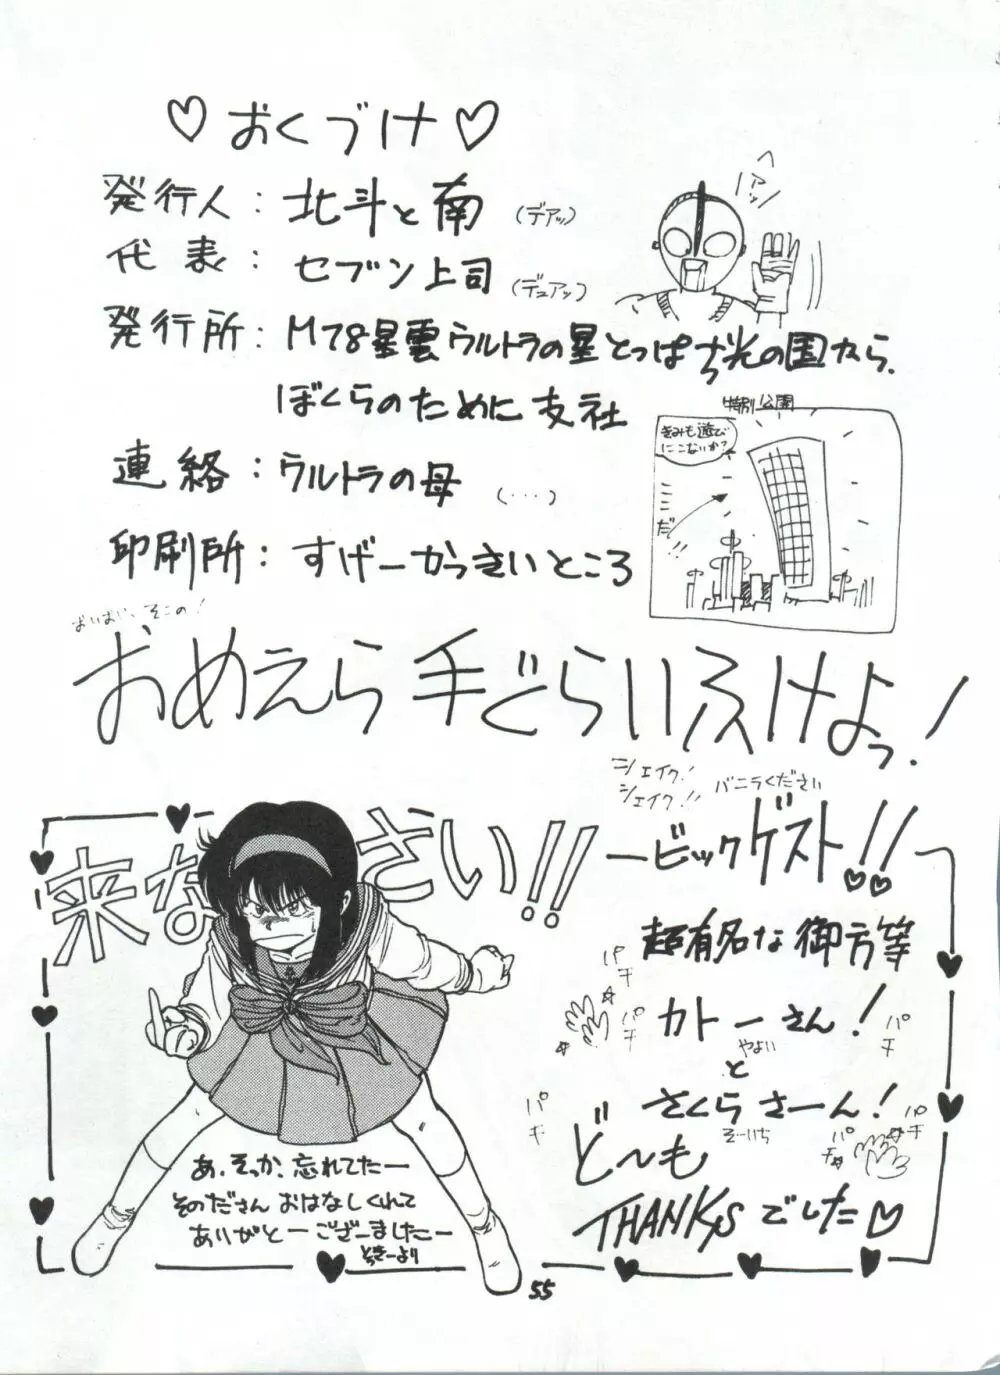 ♡おくづけ♡
発行人：北斗と南（デアッ）
代表：セブン上司（デュアッ）
発行所：M78星雲ウルトラの星とっぱち光の国なら、
ぼくらのために支社
特別公園
きみも遊び
にこないか？
ここだ!!
連絡：ウルトラの母（・・・）
印刷所：すげーかっさいところ
おいおい、そこの！
おめえら手ぐらいふけよっ！
シェイク！
シェイク！！
バニラください
来なさい!!
ービックゲスト!!
超有名な御方等
パチ
パチ
カトーさん！
やよい
パチ
と
さくらさーん！
そーいち
パチ
パチ
パチ
ど〜も
THANKSでした♡
あ、そっか、忘れてたー
そのださんおはなしくれて
ありがとーございましたー
とっきーより
55